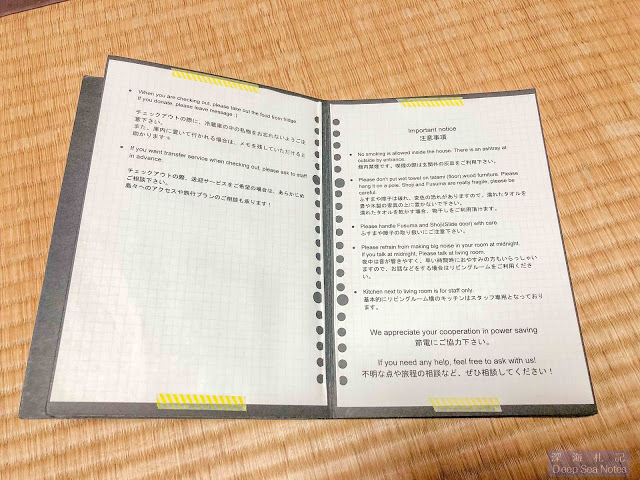 When you are checking out, please take out the food from fridge.
If you donate, please leave message :)
チェックアウトの際に、冷蔵庫の中の私物をお忘れないようご注
意下さい。
また、庫内に置いて行かれる場合は、メモを残していただけると
助かります
If you want transfer service when checking out, please ask to staff
in advance.
チェックアウトの際、送迎サービスをご希望の場合は、あらかじめ
ご相談下さい。
島々へのアクセスや旅行プランのご相談も承ります！
Important notice
注意事項
No smoking is allowed inside the house. There is an ashtray at
outside by entrance.
館内禁煙です。喫煙の際は玄関外の灰皿をご利用下さい。
Please don't put wet towel on tatami (floor) wood furniture. Please
hang it on a pole. Shoji and Fusuma are really fragile, please be
careful.
ふすまや障子は破れ、変色の恐れがありますので、濡れたタオルを
畳や木製の家具の上に置かないで下さい。
濡れたタオルを乾かす場合、物干しをご利用頂けます。
Please handle Fusuma and Shoji(Slide door) with care
ふすまや障子の取り扱いにご注意下さい。
Please refrain from making big noise in your room at midnight.
If you talk at midnight, Please talk at living room.
夜中は音が響きやすく、早い時間帯におやすみの方もいらっしゃい
ますので、お話などをする場合はリビングルームをご利用くださ
い。
Kitchen next to living room is for staff only.
基本的にリビングルーム横のキッチンはスタッフ専用となっており
ます。
We appreciate your cooperation in power saving
節電にご協力下さい。
If you need any help, feel free to ask with us!
不明な点や旅程の相談など、ぜひ相談してください！
深海札記
Deep Sea Notes